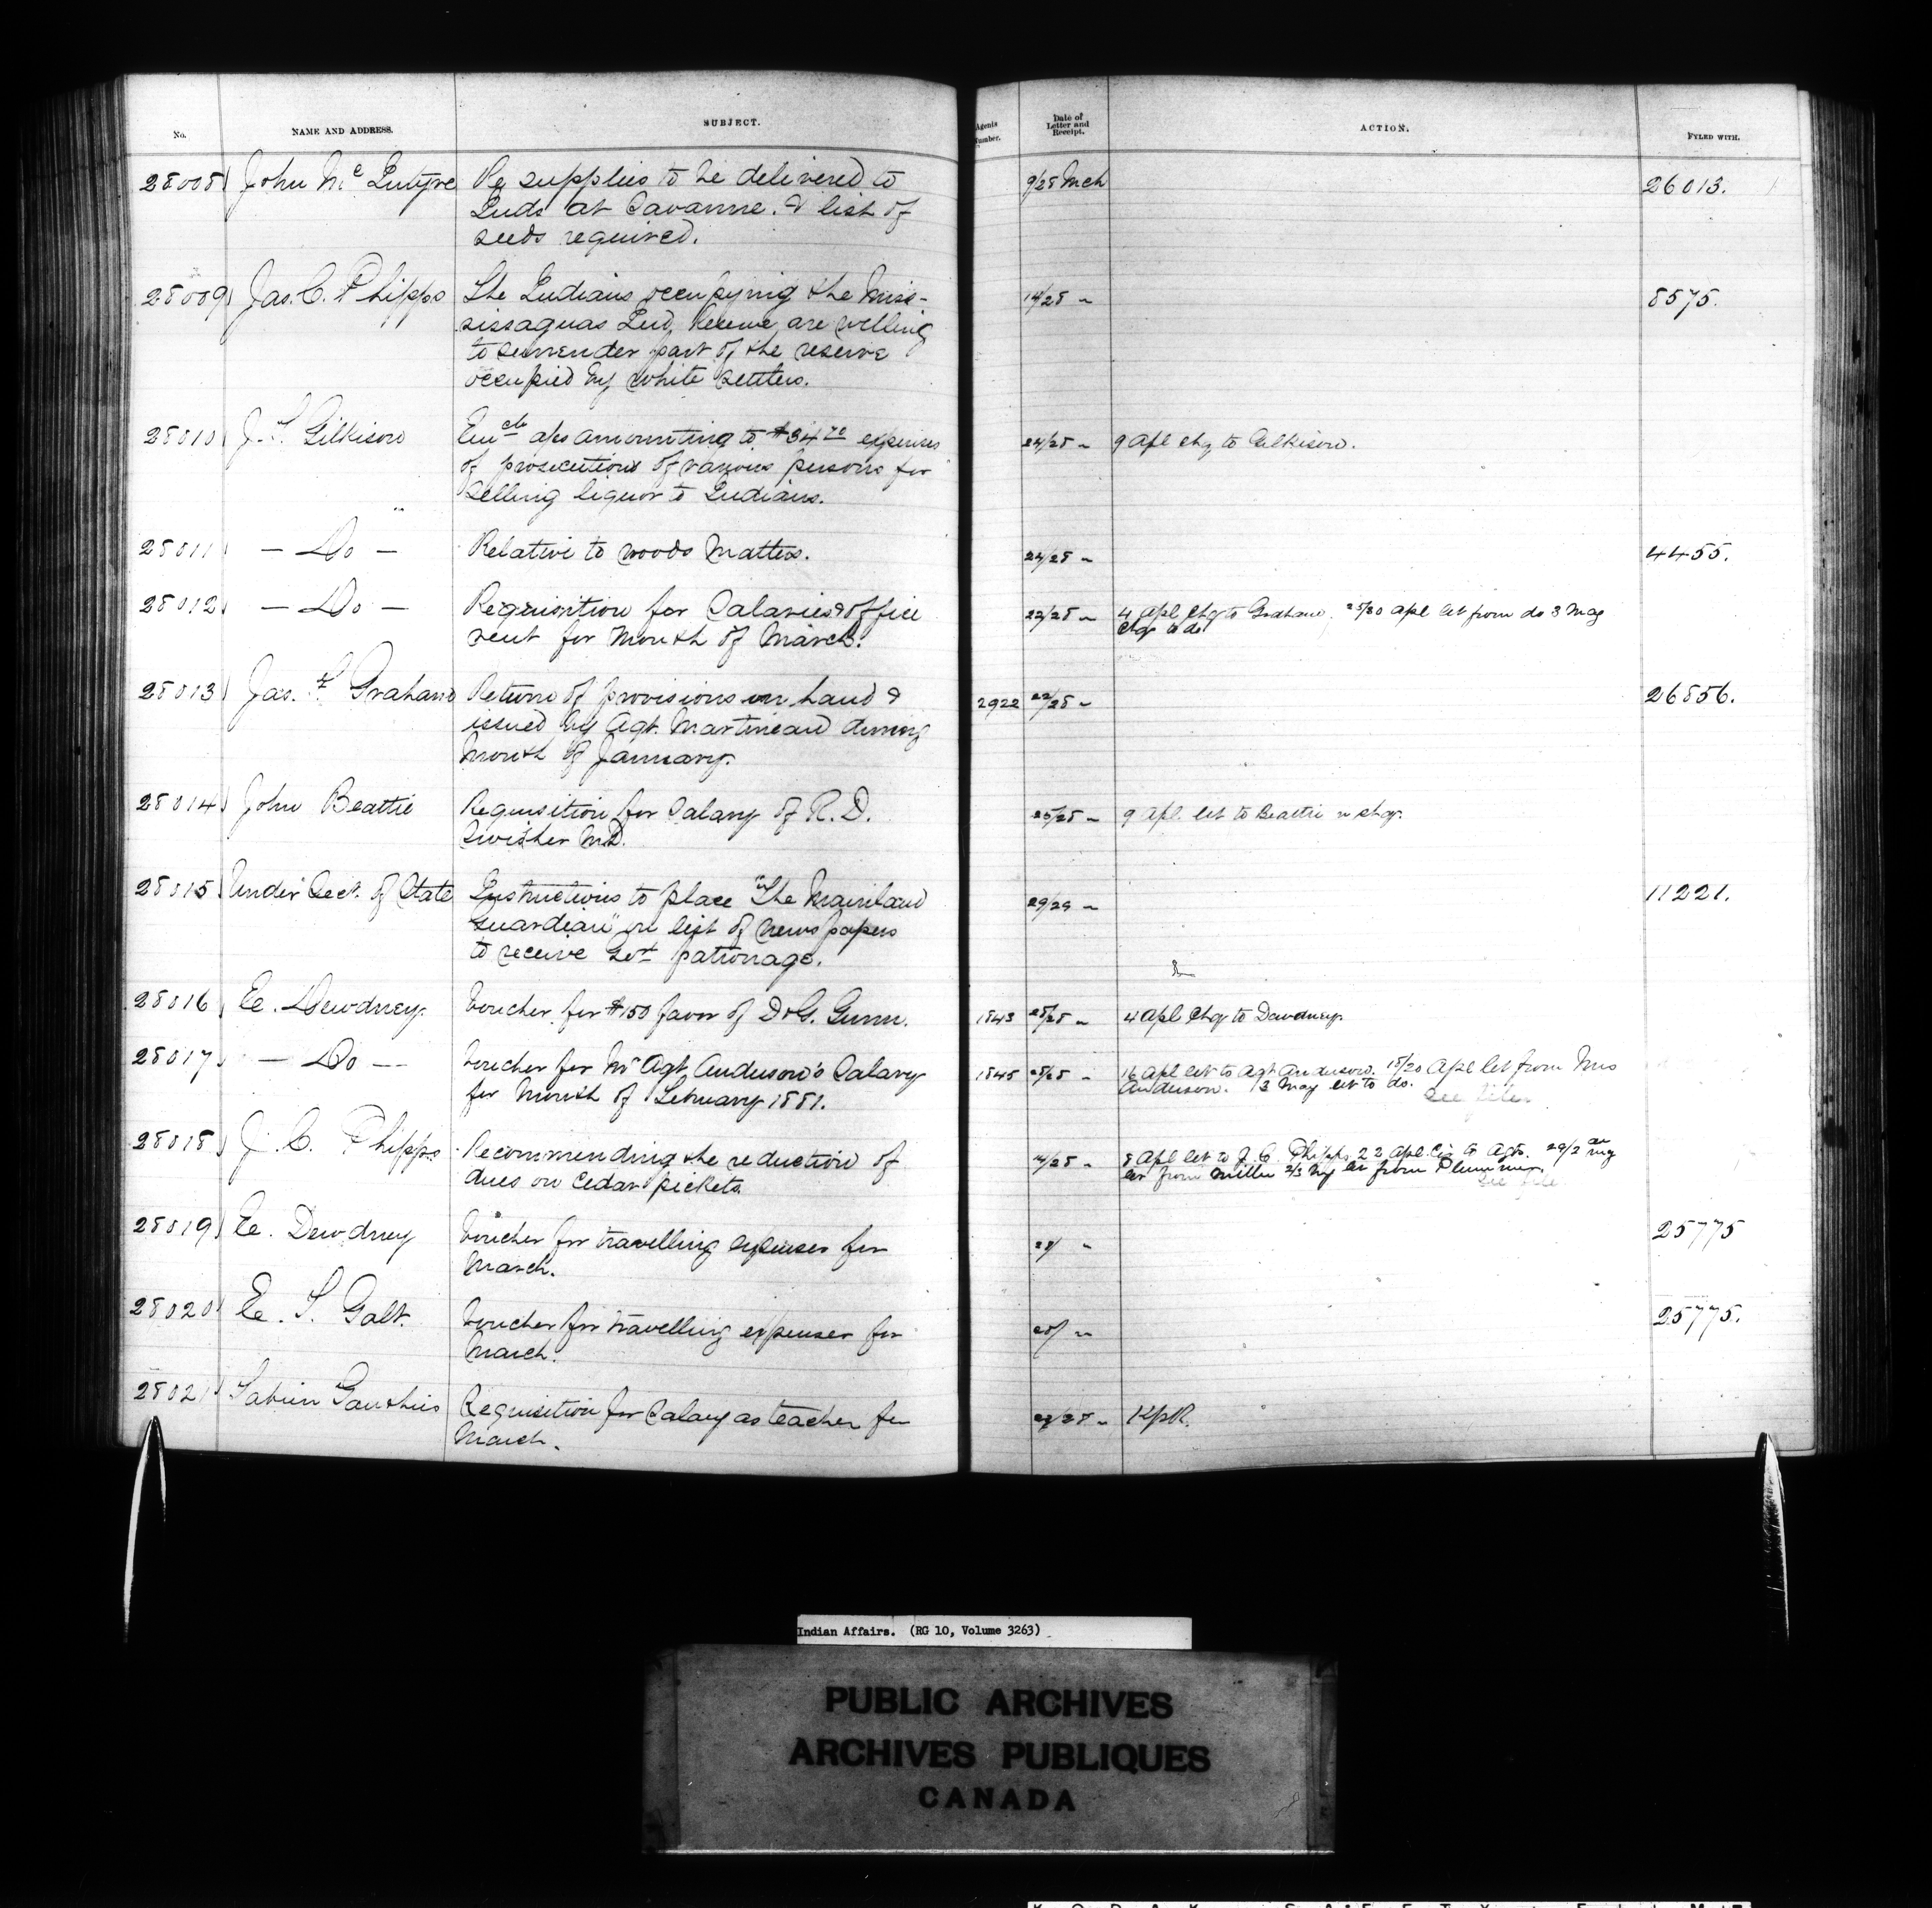 No. NAME AND ADDRESS. SUBJECT. Agents Number. Date of Letter and Receipt. ACTION. FYLED WITH.
28008 John Mc Intyre Re supplies to be delivered to 9/28 Mch 26013.
Inds at Savanne. & list of
seeds required.
28009 Jas. C. Phipps The Indians occupying the Miss- 14/28 " 8575.
sissaguas Ind. Reserve, are willing
to surrender part of the reserve
occupied by white settlers.
28010 J. T. Gilkison Encls a/cs amounting to $34 70 expenses 24/28 " 9 Apl chq to Gilkison.
of prosecutions of various persons for
selling liquor to Indians.
28011 — Do — Relative to woods Matters. 24/28 " 4455.
28012 — Do — Requisition for Salaries & office 22/28 " 4 Apl chq to Graham. 25/30 Apl let from do 3 May
rent for Month of March. chq to do
28013 Jas. F Graham Return of provisions on hand & 2922 22/28 " 26856.
issued by Agt. Martineau during
Month of January.
28014 John Beattie Requisition for Salary of R. D. 25/28 " 9 Apl. let to Beattie w chq.
Swisher M.D.
28015 Under Sect. of State Instructions to place "The Mainland 29/29 " 11221.
Guardian" on list of newspapers
to receive Govt patronage.
28016 E. Dewdney. Voucher for $150 favor of D. G. Gunn. 1843 28/28 " 4 Apl chq to Dewdney.
28017 — Do — Voucher for Mr Agt. Anderson's Salary 1845 28/28 " 16 Apl let to Agt Anderson. 18/20 Apl let from Mrs
for Month of February 1881. Anderson. 13 May let to do.
see files
28018 J. C. Phipps Recommending the reduction of 14/28 " 8 Apl let to J. C. Phipps 22 Apl. Cir to Agts. 29/2 My
dues on Cedar pickets. let from Miller 2/3 My let from Plummer
see file
28019 E. Dewdney Voucher for travelling expenses for 28/ " 25775
March.
28020 E. T. Galt. Voucher for travelling expenses for 28/ " 25775.
March.
28021 Fabien Gauthier Requisition for Salary as teacher for 23/28 "
March.
Indian Affairs. (RG 10, Volume 3263)
PUBLIC ARCHIVES
ARCHIVES PUBLIQUES
CANADA